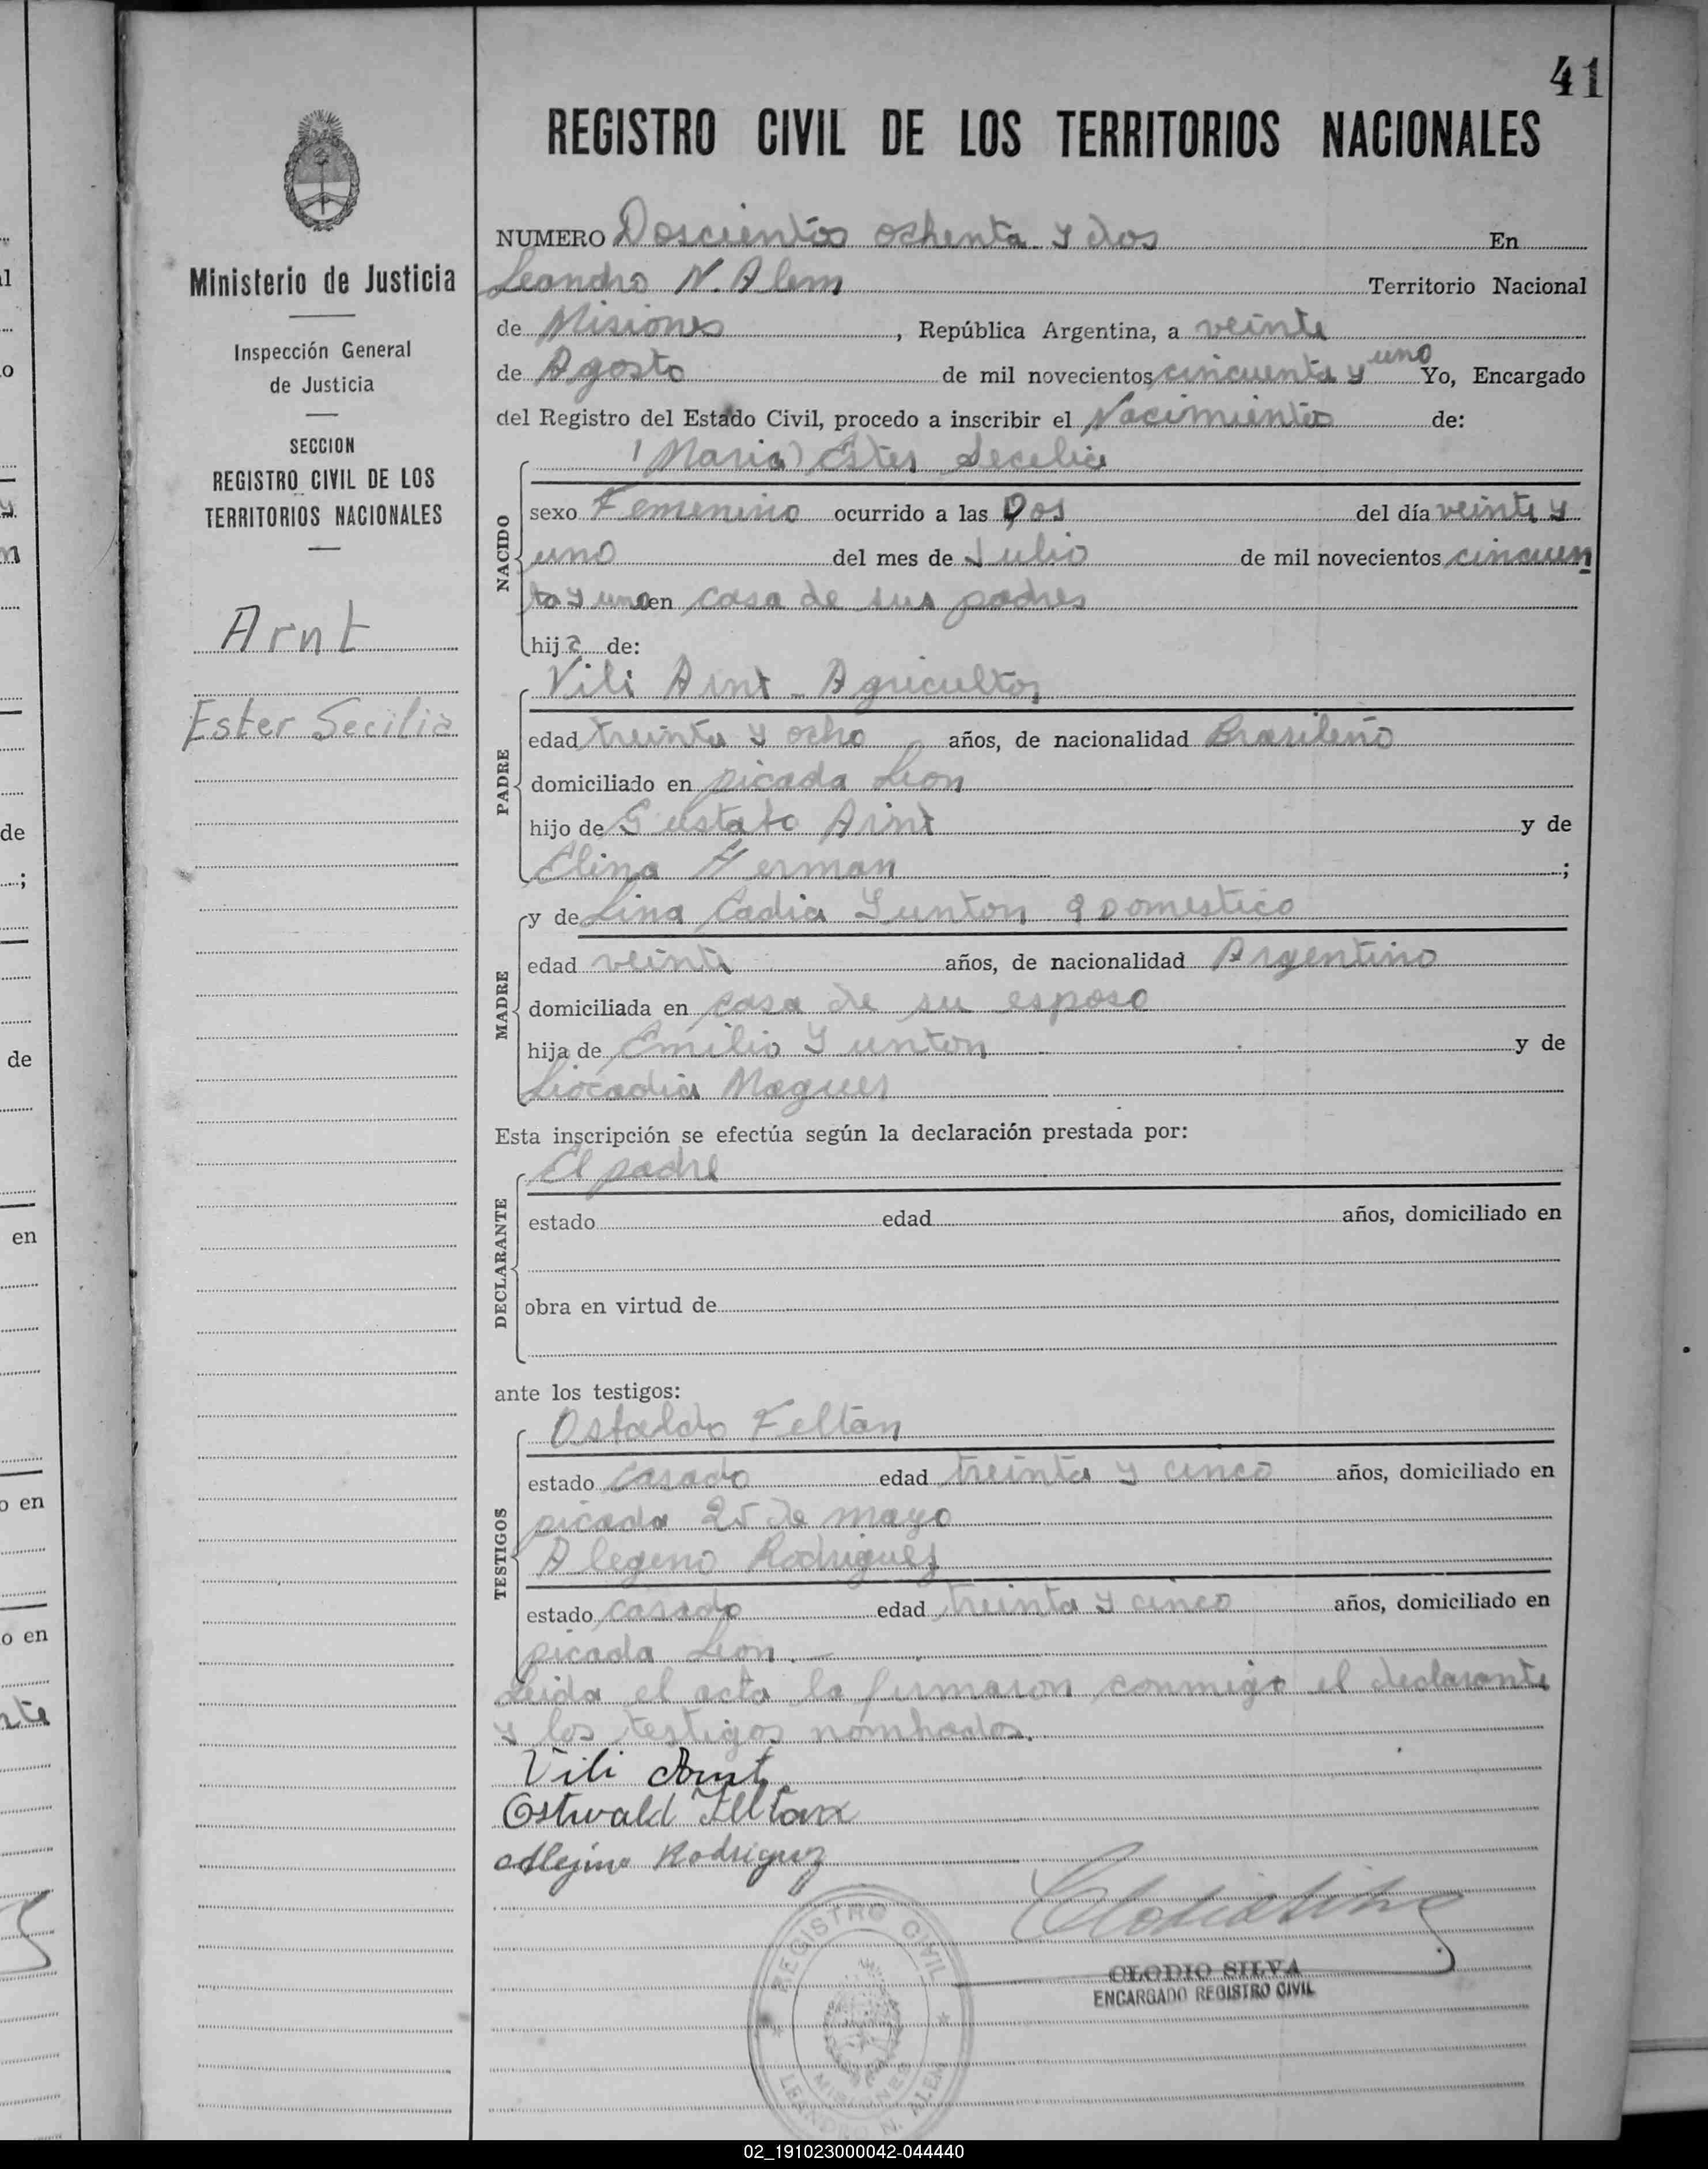 41
REGISTRO CIVIL DE LOS TERRITORIOS NACIONALES
Ministerio de Justicia
Inspección General
de Justicia
SECCION
REGISTRO CIVIL DE LOS
TERRITORIOS NACIONALES
Arnt
Ester Secilia
NUMERO Doscientos ochenta y dos En
Leandro N. Alem Territorio Nacional
de Misiones, República Argentina, a veinte
de Agosto de mil novecientos cincuenta y uno Yo, Encargado
del Registro del Estado Civil, procedo a inscribir el Nacimiento de:
(Maria) Ester Secelia
NACIDO
sexo Femenino ocurrido a las Dos del día veinte y
uno del mes de Julio de mil novecientos cincuen
ta y uno en casa de sus padres
hija de:
Vili Arnt - Agricultor
PADRE
edad treinta y ocho años, de nacionalidad Brasileño
domiciliado en picada Leon
hijo de Gustafo Arnt y de
Elina Herman;
y de Lina Cadia Yunton q domestico
MADRE
edad veinte años, de nacionalidad Argentino
domiciliada en casa de su esposo
hija de Emilio Yunton y de
Liocadia Magues
Esta inscripción se efectúa según la declaración prestada por:
El padre
DECLARANTE
estado edad años, domiciliado en
obra en virtud de
ante los testigos:
Osfaldo Feltan
TESTIGOS
estado casado edad treinta y cinco años, domiciliado en
picada 25 de mayo
Alegeno Rodrigues
estado casado edad treinta y cinco años, domiciliado en
picada Leon. -
Leida el acta la firmaron conmigo el declarante
y los testigos nombrados.
Vili Arnt
Ostwald
Rodriguez
CLODIO SILVA
ENCARGADO REGISTRO CIVIL
REGISTRO CIVIL
MISIONES
LEANDRO N. ALEM
02_191023000042-044440